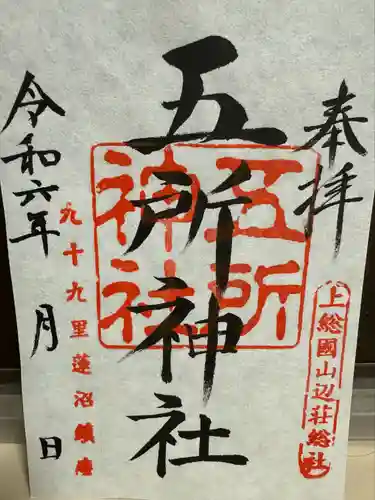 奉拝
上総國山辺荘総社
五所神社
五所
神社
九十九里蓮沼鎮座
令和六年 月 日